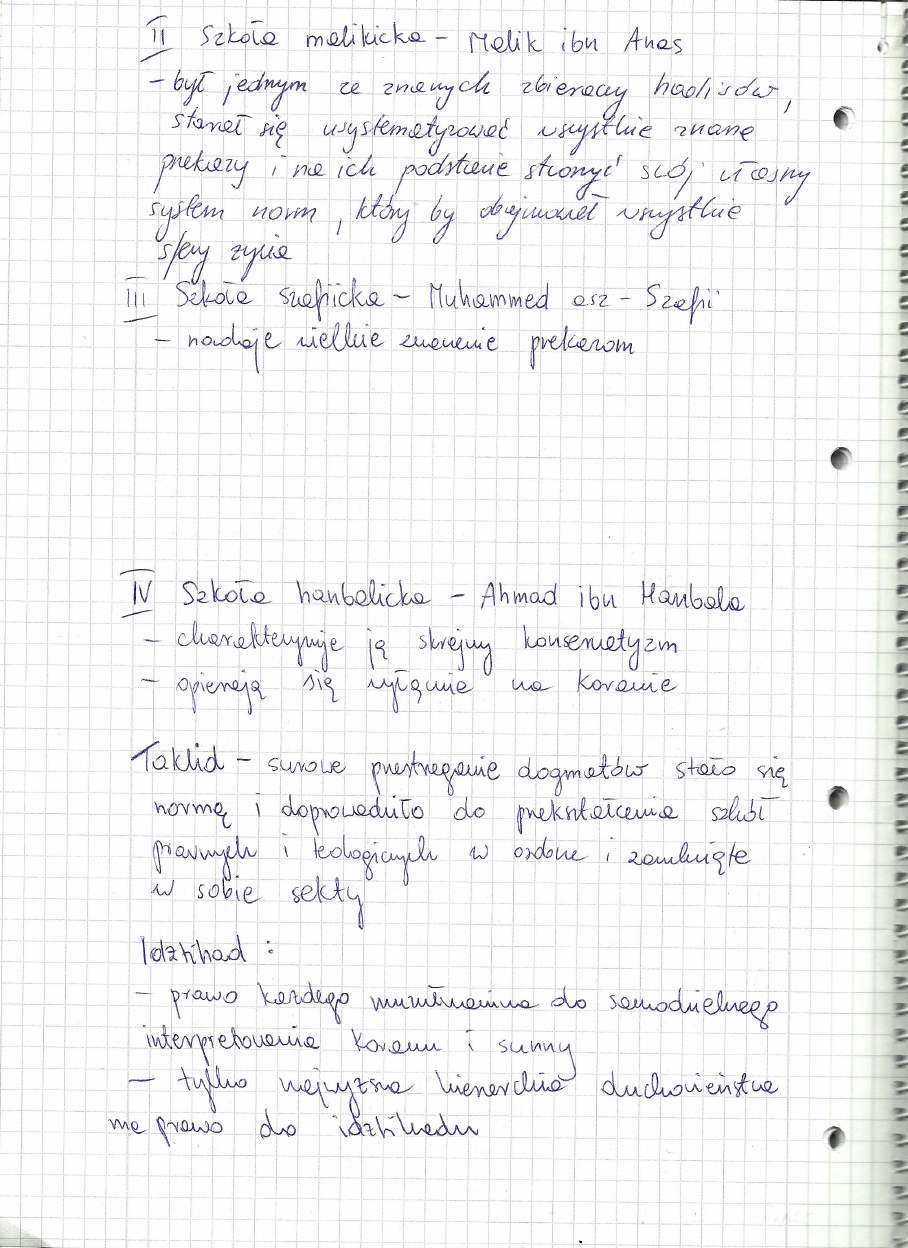 II Szkoła malikicka – Malik ibn Anas
– był jednym ze znanych zbieraczy hadisów,
starał się usystematyzować wszystkie znane
przekazy i na ich podstawie stworzyć swój własny
system norm, który by obejmował wszystkie
sfery życia
III Szkoła szaficka – Muhammed asz – Szafii
– nadaje wielkie znaczenie przekazom
IV Szkoła hanbalicka – Ahmad ibn Hanbala
– charakteryzuje ją skrajny konserwatyzm
– opierają się wyłącznie na Koranie
Taklid – surowe przestrzeganie dogmatów stało się
normą i doprowadziło do przekształcenia szkół
prawnych i teologicznych w osobne i zamknięte
w sobie sekty
Idżtihad :
– prawo każdego muzułmanina do samodzielnego
interpretowania Koranu i sunny
– tylko najwyższa hierarchia duchowieństwa
ma prawo do idżtihadu